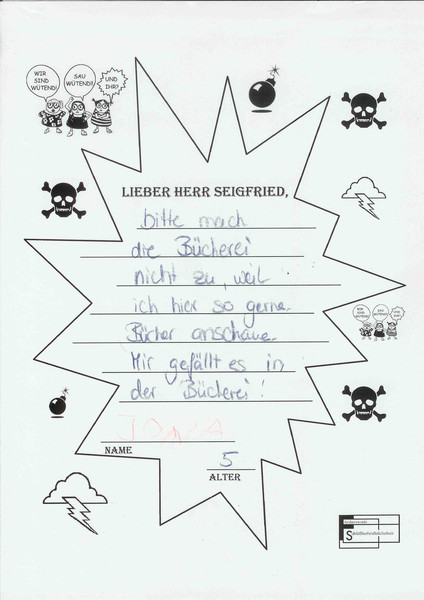 WIR SIND WÜTEND!
SAU WÜTEND!!
UND IHR?
LIEBER HERR SEIGFRIED,
bitte mach
die Bücherei
nicht zu, weil
ich hier so gerne
Bücher anschaue.
Mir gefällt es in
der Bücherei!
JONNA
NAME
5
ALTER
WIR SIND WÜTEND!
SAU WÜTEND!!
UND IHR?